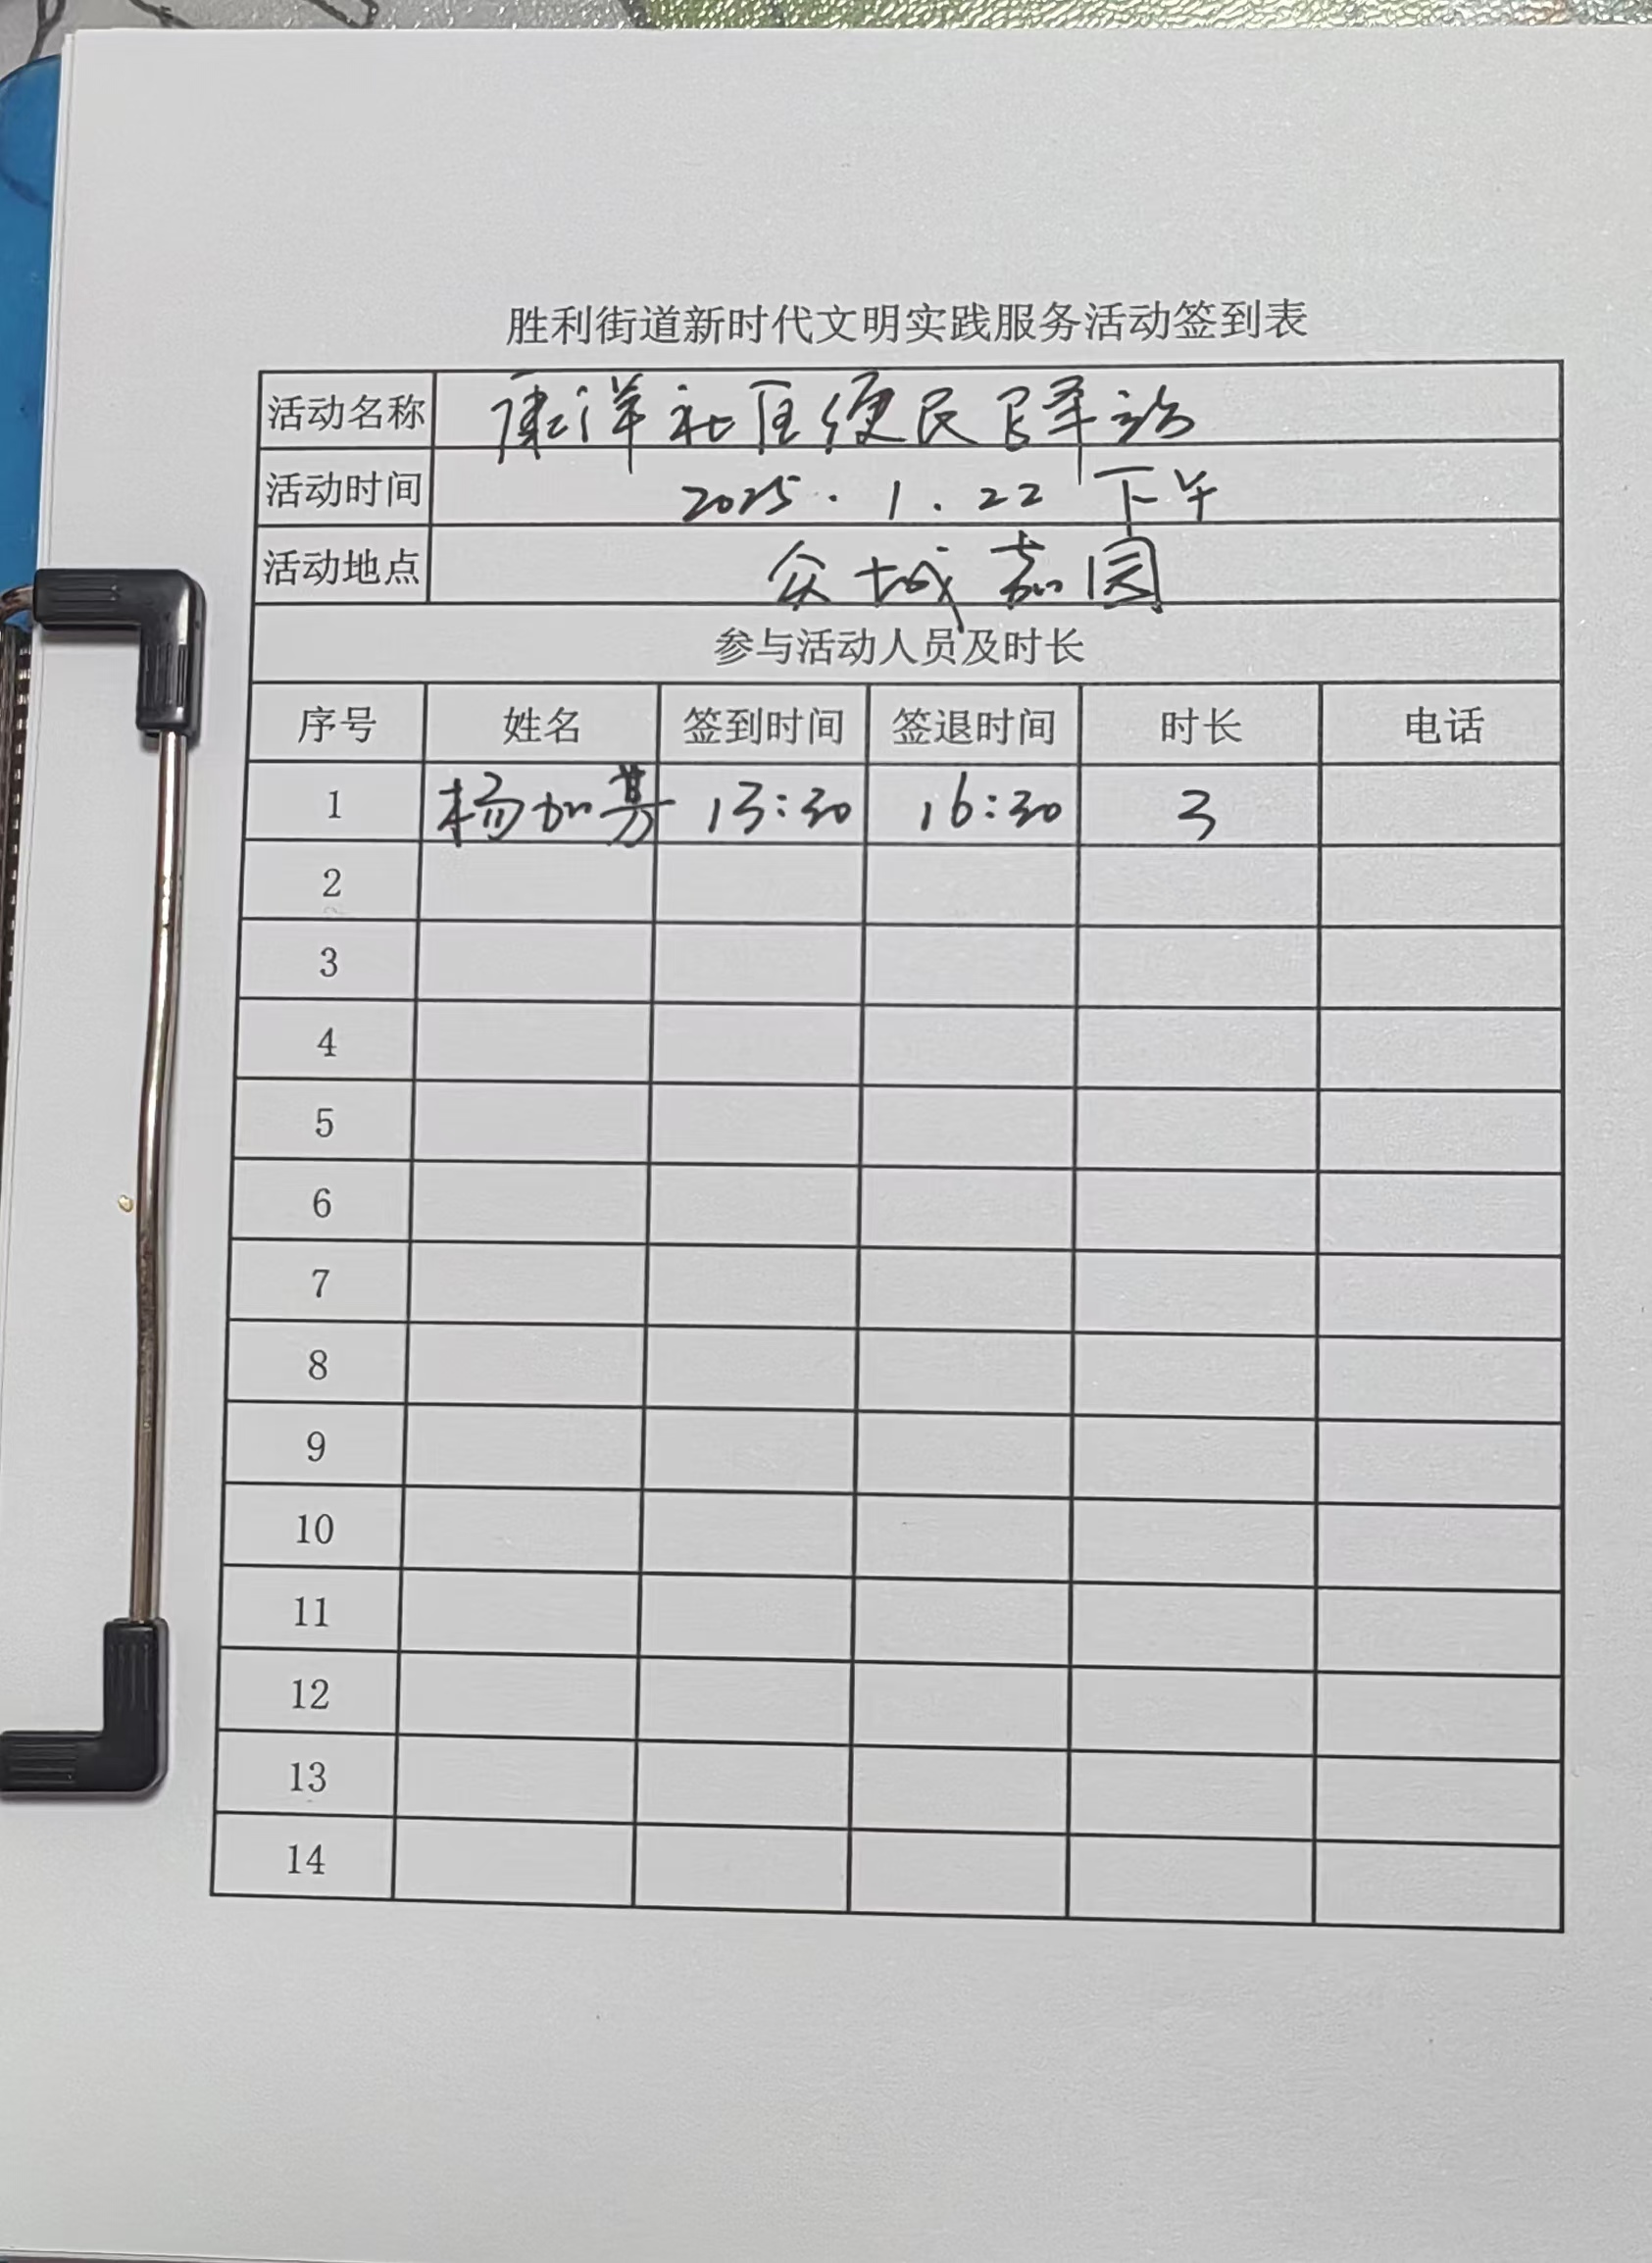 胜利街道新时代文明实践服务活动签到表
活动名称 康洋社区便民驿站
活动时间 2025.1.22 下午
活动地点 众城嘉园
参与活动人员及时长
序号 姓名 签到时间 签退时间 时长 电话
1 杨加 13:30 16:30 3
2
3
4
5
6
7
8
9
10
11
12
13
14